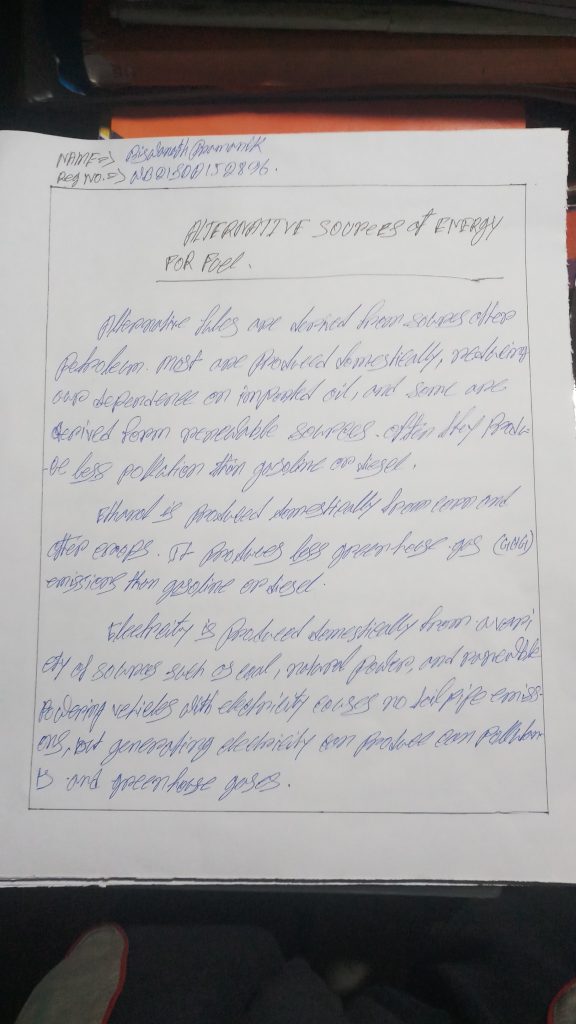 NAME => Biswanath Pramanik
Reg NO. =>
ALTERNATIVE SOURCES of ENERGY
FOR FUEL.
Alternative fules are derived from sources other
petroleum. most are produced domestically, reducing
our dependence on imported oil, and some are
derived form renewable sources. often they Produ-
-ce less pollution than gasoline or diesel.
Ethanol is produced domestically from corn and
other crops. It produces less greenhouse gas (GHG)
emissions than gasoline or diesel.
Electricity is produced domestically from a vari
ety of sources such as coal, natural power, and renewable
Powering vehicles with electricity causes no tailpipe emiss-
ons, but generating electricity can produce can pollutan
ts and greenhouse gases.